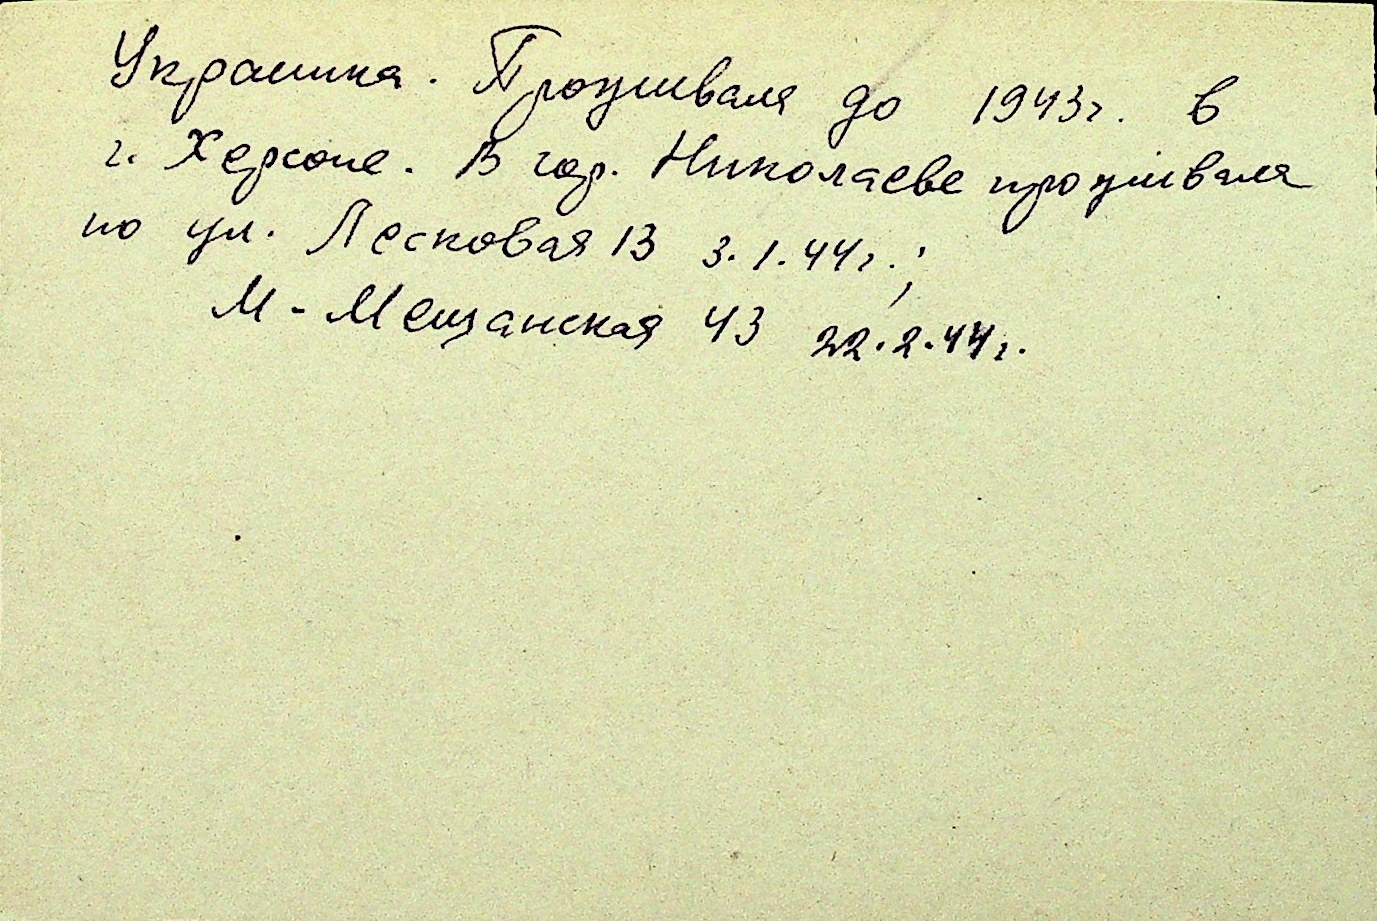 Украинка. Проживала до 1943г. в
г. Херсоне. В гор. Николаеве проживала
по ул. Лесковая 13 3.1.44г.;
М-Мещанская 43 22.2.44г.